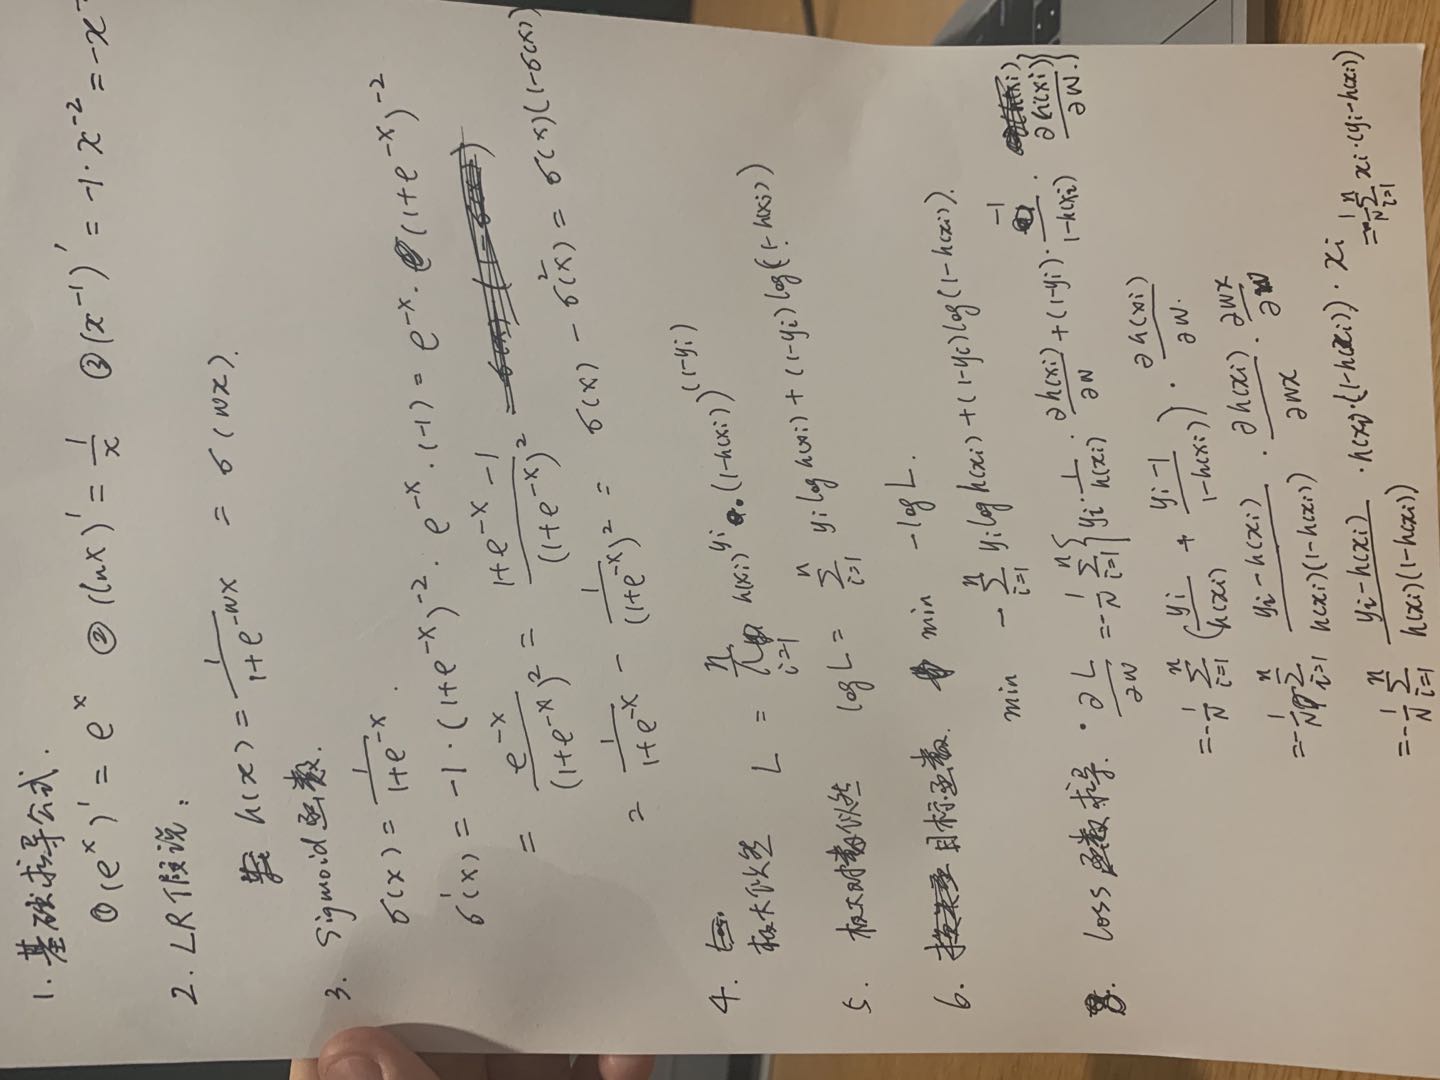 1. 基础求导公式.
① (e^x)' = e^x ② (lnx)' = 1/x ③ (x^{-1})' = -1·x^{-2} = -x^-
2. LR假说:
h(x) = 1/(1+e^{-wx}) = σ(wx).
3. Sigmoid函数.
σ(x) = 1/(1+e^{-x}).
σ'(x) = -1·(1+e^{-x})^{-2}·e^{-x}·(-1) = e^{-x}·(1+e^{-x})^{-2}
= e^{-x}/(1+e^{-x})^2 = (1+e^{-x}-1)/(1+e^{-x})^2
= 1/(1+e^{-x}) - 1/(1+e^{-x})^2 = σ(x) - σ^2(x) = σ(x)(1-σ(x))
4. 极大似然 L = ∏_{i=1}^{n} h(xi)^{yi}·(1-h(xi))^{(1-yi)}
5. 极大对数似然 log L = ∑_{i=1}^{n} yi log h(xi) + (1-yi) log(1-h(xi))
6. 目标函数. min -log L.
min -∑_{i=1}^{n} yi log h(xi) + (1-yi) log(1-h(xi)).
Loss函数求导. · ∂L/∂w = -1/N ∑_{i=1}^{n} {yi·1/h(xi)·∂h(xi)/∂w + (1-yi)·-1/(1-h(xi))·∂h(xi)/∂w.}
= -1/N ∑_{i=1}^{n} (yi/h(xi) + (yi-1)/(1-h(xi)))·∂h(xi)/∂w.
= -1/N ∑_{i=1}^{n} (yi-h(xi))/(h(xi)(1-h(xi)))·∂h(xi)/∂wx·∂wx/∂w
= -1/N ∑_{i=1}^{n} (yi-h(xi))/(h(xi)(1-h(xi)))·h(xi)·(1-h(xi))·xi = -1/N ∑_{i=1}^{n} xi·(yi-h(xi))